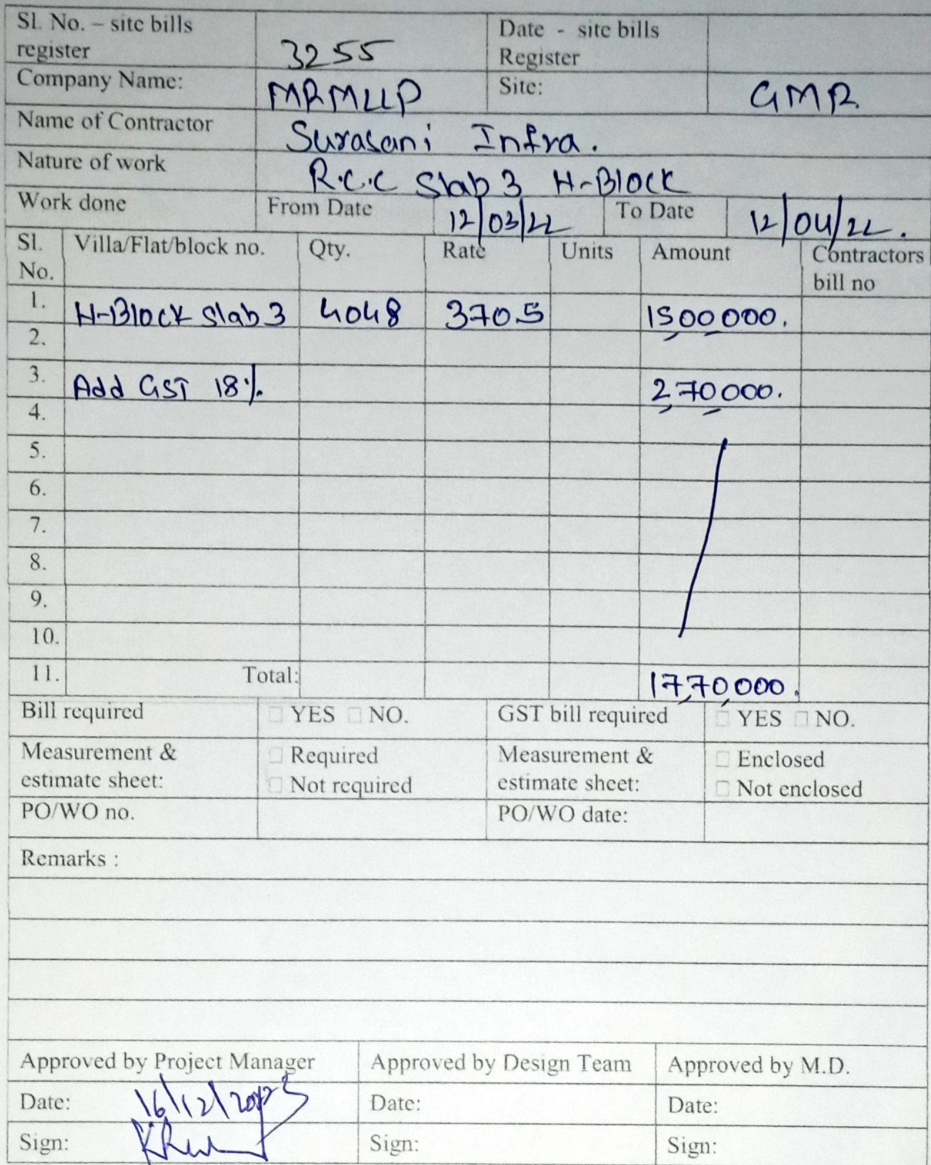 Sl. No. – site bills register 3255 Date - site bills Register
Company Name: MRMLLP Site: GMR
Name of Contractor Surasani Infra.
Nature of work R.C.C Slab 3 H-Block
Work done From Date 12/03/22 To Date 12/04/22.
Sl. No. Villa/Flat/block no. Qty. Rate Units Amount Contractors bill no
1. H-Block Slab 3 4048 370.5 1500000.
2.
3. Add GST 18%. 270000.
4.
5.
6.
7.
8.
9.
10.
11. Total: 1770000.
Bill required □ YES □ NO. GST bill required □ YES □ NO.
Measurement & estimate sheet: □ Required □ Not required Measurement & estimate sheet: □ Enclosed □ Not enclosed
PO/WO no. PO/WO date:
Remarks :
Approved by Project Manager Approved by Design Team Approved by M.D.
Date: 16/12/2023 Date: Date:
Sign: Sign: Sign: